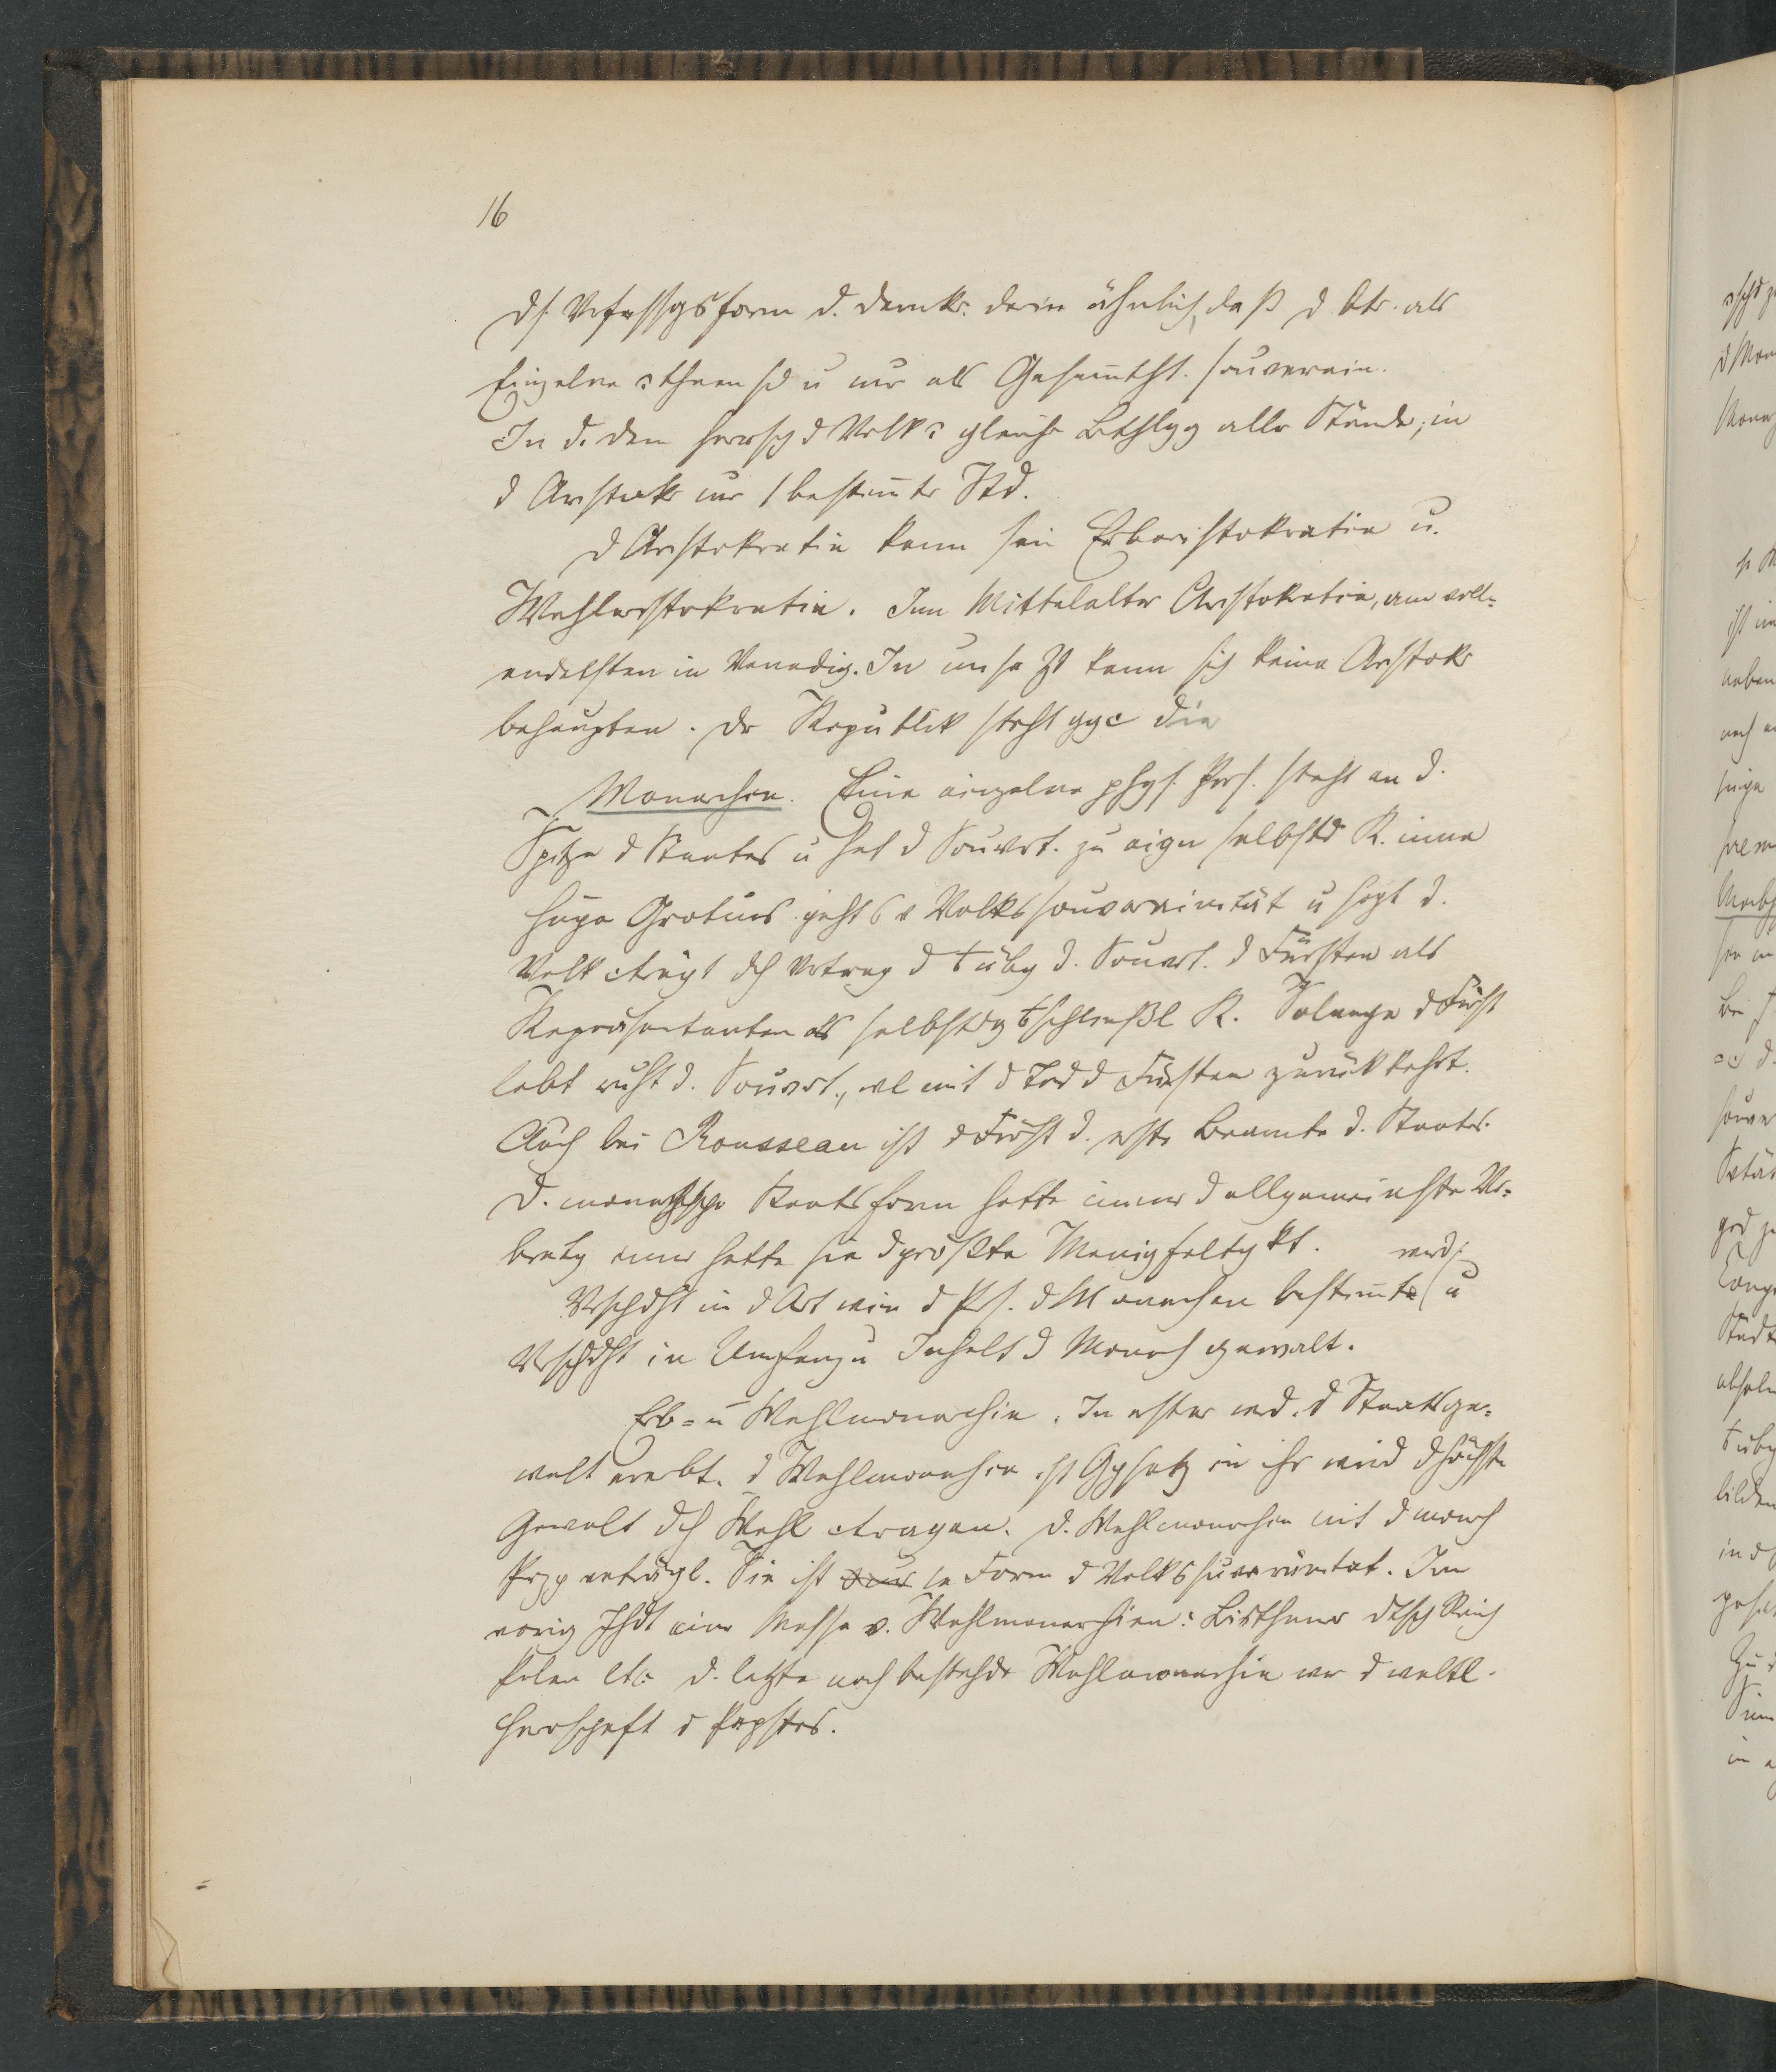 16
ds. Vrfassgsform d. demkr. darin ähnlich, daß d Atr. als
Einzelne Uthanen sd u nur als Gesam̅tht. souverain.
In d. dem herrsch d Volk gleiche Bethlgg aller Stände; in
d Aristokr nur 1 bestim̅ter Std.
d Aristokratie kann sein Erbaristokratie u.
Wahlaristokratie. Im Mittelalter Aristokratie, am voll=
endetsten in Venedig. In unsr Zt kann sich keine Aristokr
behaupten. Dr Republik steht ggü die
Monarchie. Eine einzelne phys. Pers. steht an d.
Spitze d Staates u hat d Souvrt. zu eign selbstd R. inne
Hugo Grotius geht v Volkssouverainität u sagt d.
Volk trägt dch Vrtrag d Übg d. Souvrt. d Fürsten als
Repräsentanten als selbstdg schließl R. Solange d Fürst
lebt ruht d. Souvrt., wl mit d Tod d Fürsten zurükkehrt.
Auch bei Rousseau ist d Fürst d. erste Beamte d. Staates.
D. monarchsche Staatsform hatte immer d allgemeinste Vr=
breitg immer hatte sie d größte Manigfaltgkt.
Vrschdht in d Art wie d Prs. d Monarchen bestim̅t wrd u
Vrschdht in Umfang u Inhalt d Monarchgewalt.
Erb= u Wahlmonarchie. In erster wrd. d Staatsge=
walt vererbt. d Wahlmonarchie ist Ggsatz in ihr wird d höchste
Gewalt dch Wahl tragen. D. Wahlmonarchie mit d monrch
Przp verträgl. Sie ist nur e Form d Volkssuverainität. Im
vorig Jhdt eine Masse v. Wahlmonarchien: Bisthümer dtsch Reich
Polen etc. D. letzte noch bestehde Wahlmonarchie war d weltl.
Herrschaft d Papstes.